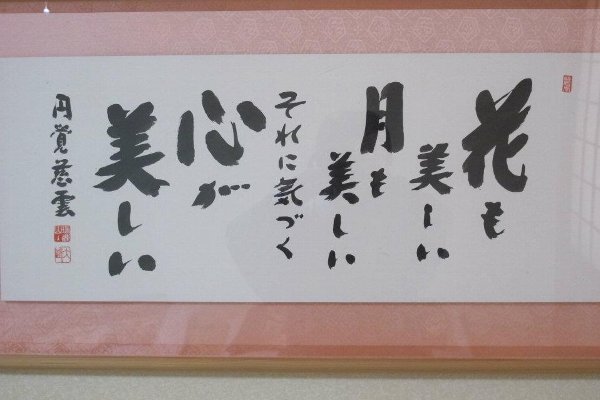 花も
美しい
月も
美しい
それに気づく
心が
美しい
円覚慈雲